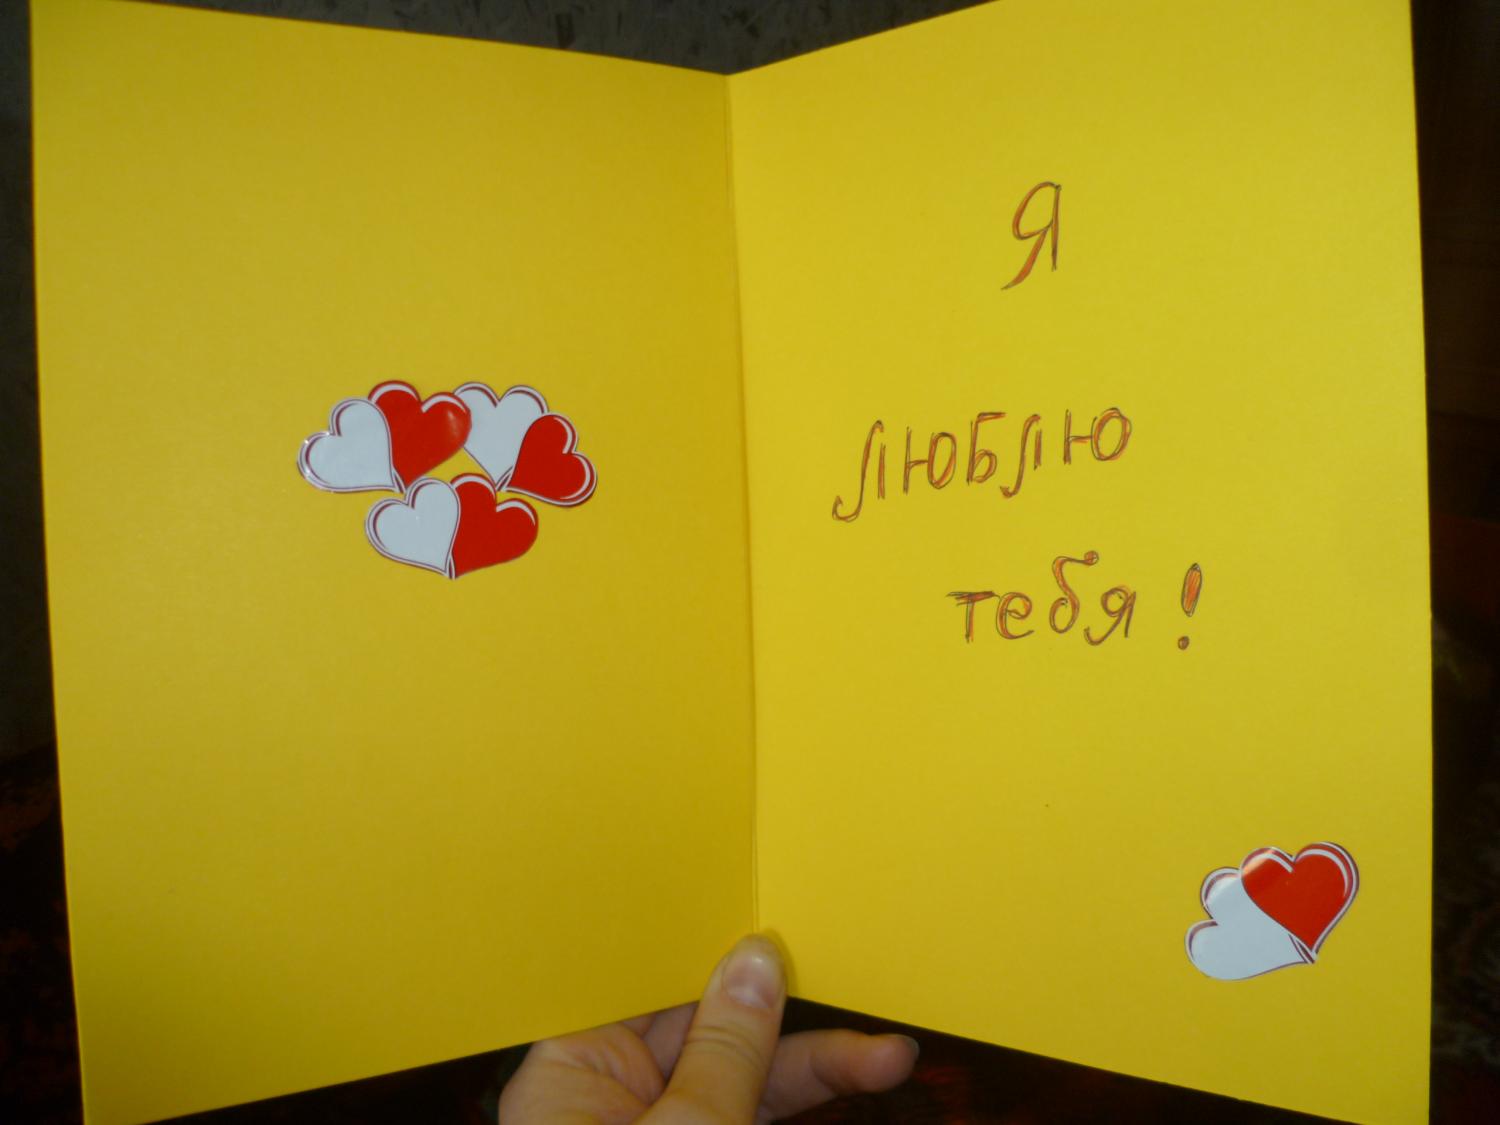 Я
люблю
тебя!